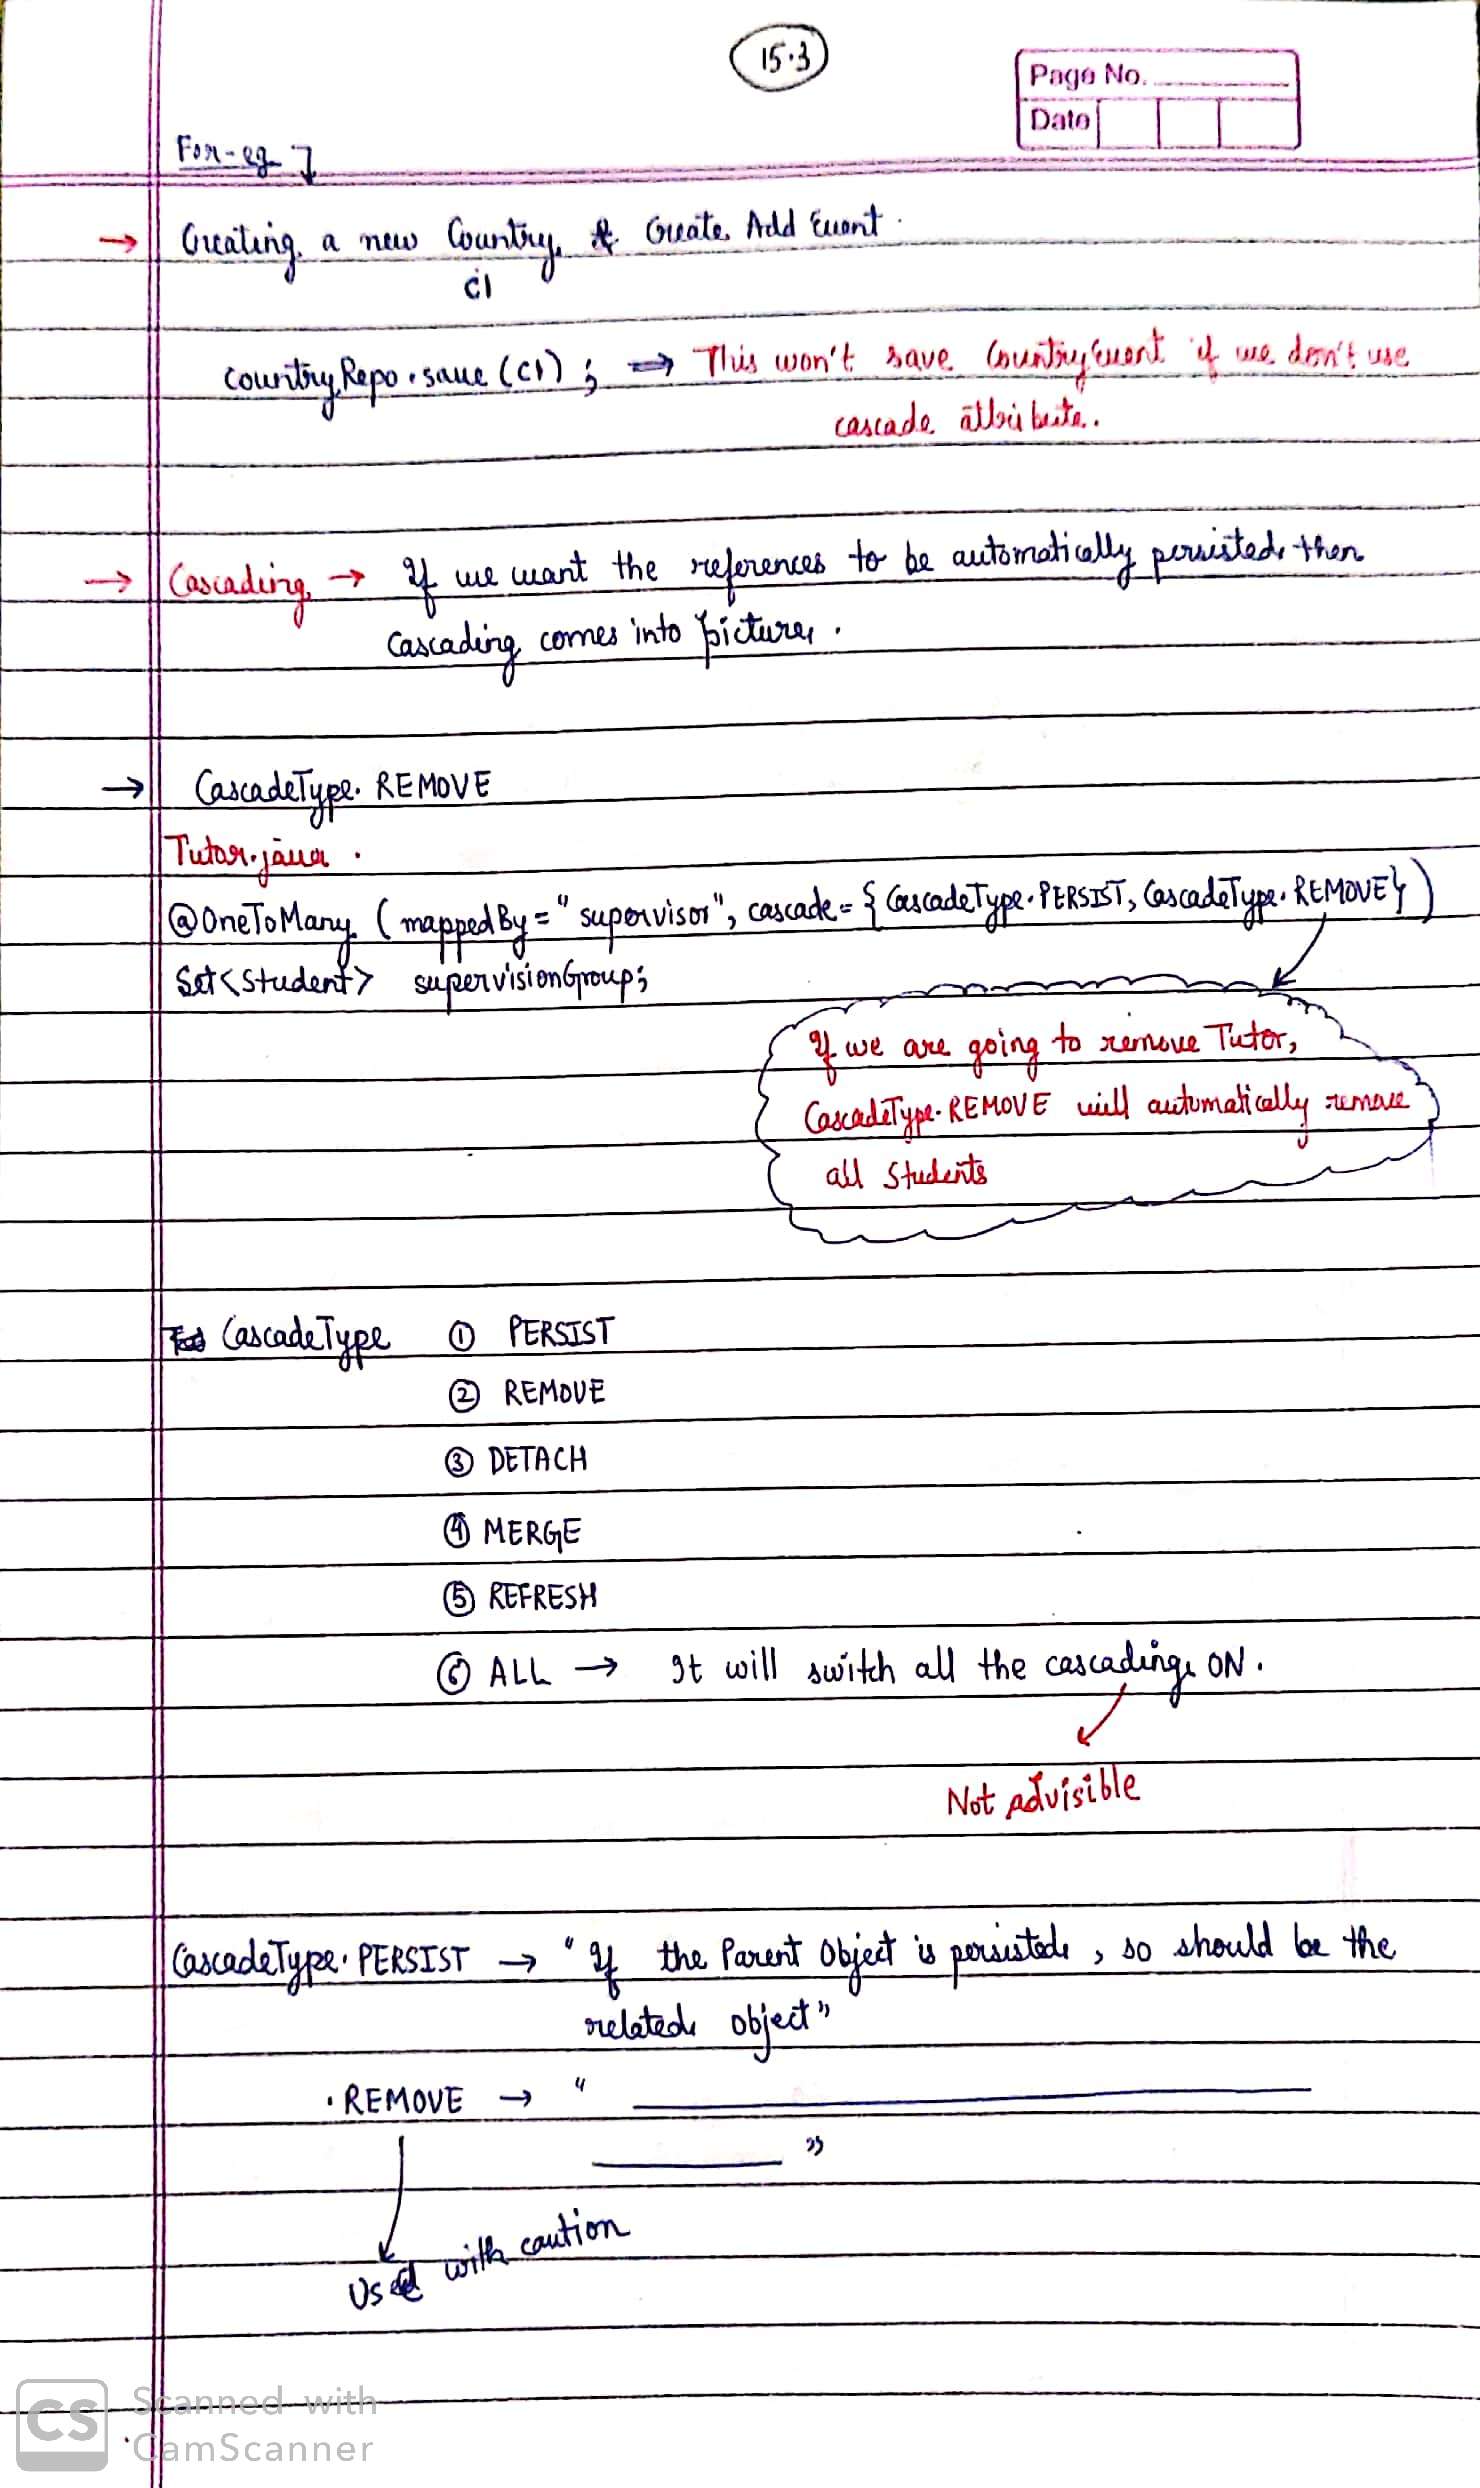 15.3
Page No.
Date
For-eg
→ Creating a new Country & Create Add Event.
c1
countryRepo.save(c1); ⇒ This won't save CountryEvent if we don't use
cascade attribute.
→ Cascading → If we want the references to be automatically persisted then
Cascading comes into picture.
→ CascadeType.REMOVE
Tutor.java.
@OneToMany (mappedBy = "supervisor", cascade = {CascadeType.PERSIST, CascadeType.REMOVE})
Set<Student> supervisionGroup;
If we are going to remove Tutor,
CascadeType.REMOVE will automatically remove
all Students
CascadeType ① PERSIST
② REMOVE
③ DETACH
④ MERGE
⑤ REFRESH
⑥ ALL → It will switch all the cascading ON.
Not advisible
CascadeType.PERSIST → "If the Parent Object is persisted, so should be the
related object"
.REMOVE → "
"
Used with caution
CS Scanned with
CamScanner